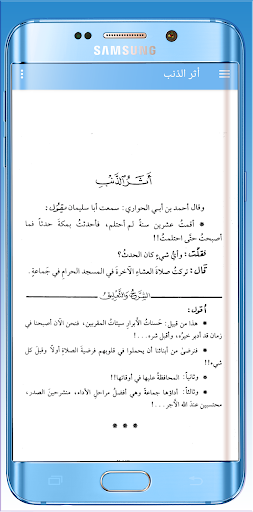 SAMSUNG
أثر الذنب
أثر الذنب
وقال أحمد بن أبي الحواري: سمعت أبا سليمان يقول:
• أقمتُ عشرين سنةً لم أحتلم، فأحدثتُ بمكةَ حدثاً فما
أصبحتُ حتَّى احتلمتُ!!
فقلتُ: وأيُّ شيءٍ كان الحدثُ؟
قال: تركتُ صلاةَ العشاءِ الآخرةَ في المسجد الحرامِ في جماعةٍ.
الشرح والتعليق
أقول:
• هذا من قبيل: حَسناتُ الأبرارِ سيئاتُ المقربين، فنحن الآن أصبحنا في
زمان قد أدبر خيرُه، وأقبل شره...!
• فنرضىٰ من أبنائنا أن يحملوا في قلوبهم فرضيةَ الصلاةِ أولاً وقبلَ كل
شيء!!
• وثانياً: المحافظةُ عليها في أوقاتها!!
• وثالثاً: أداؤها جماعةً وهي أفضلُ مراحلِ الأداء، منشرحينَ الصدر،
محتسبين عندَ الله الأجر...!
* * *